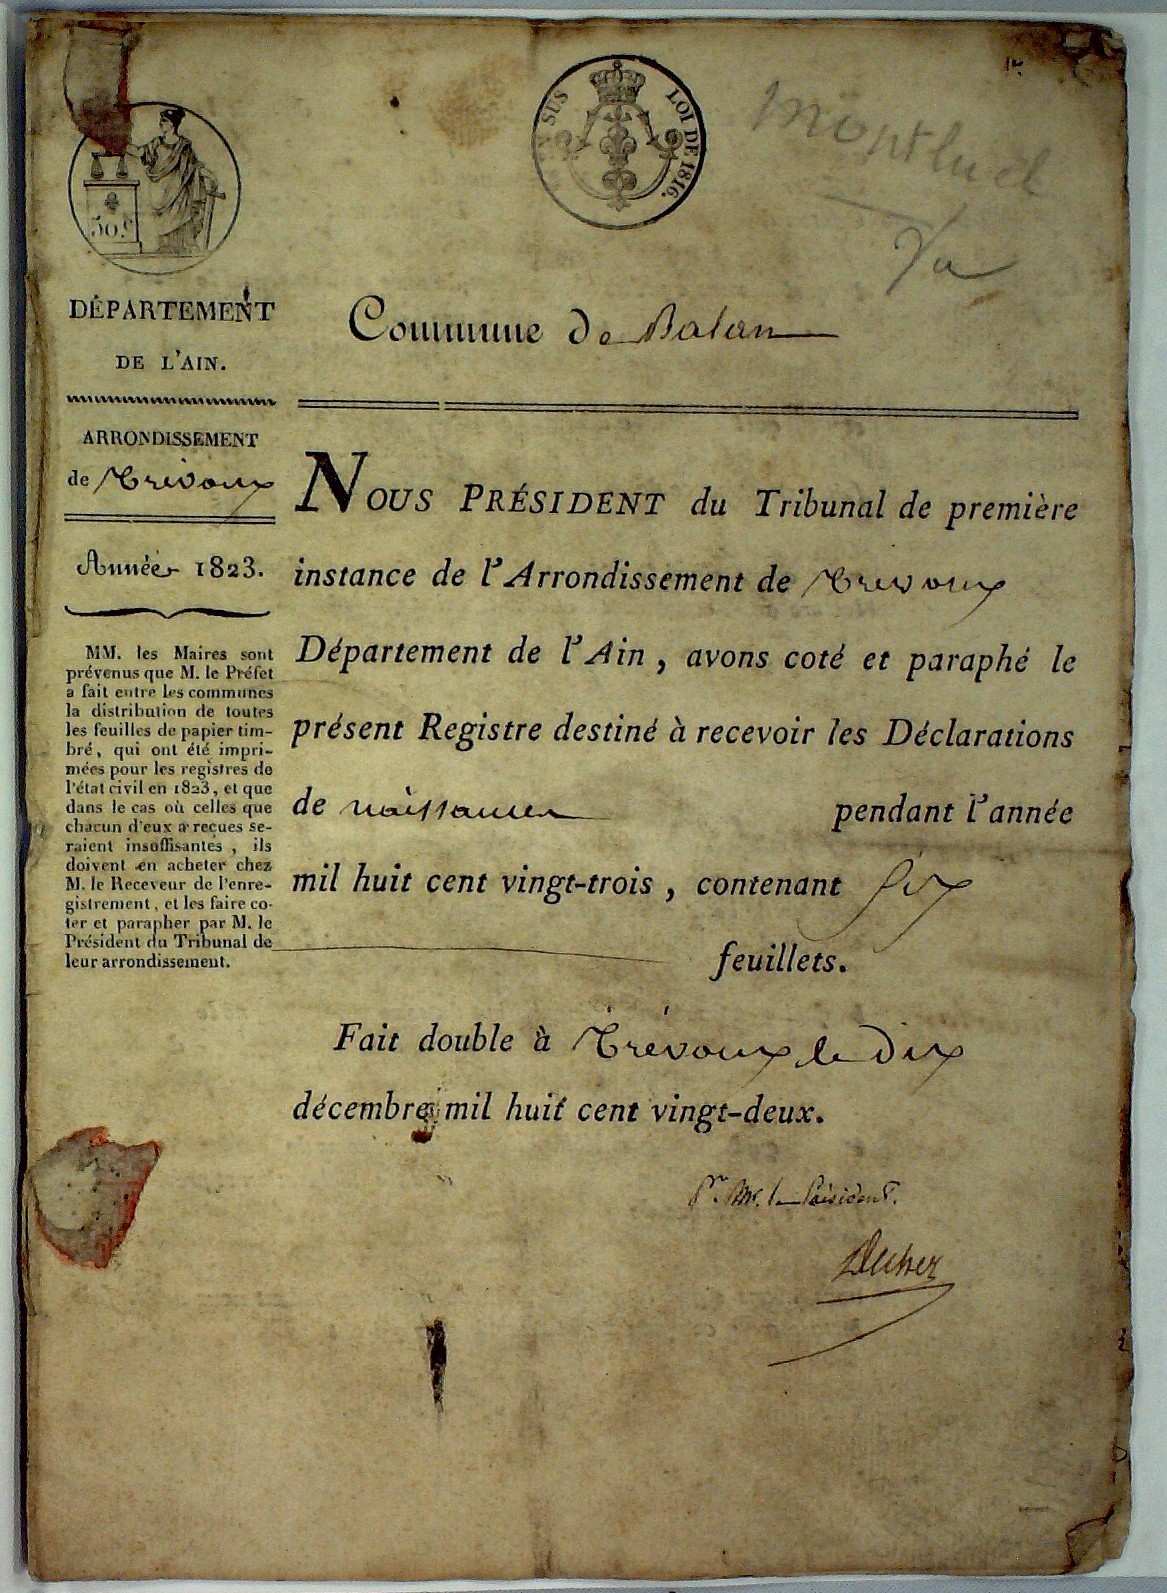 1er
EN SUS LOI DE 1816.
50 c
Montluel
Vu
DÉPARTEMENT
DE L'AIN.
ARRONDISSEMENT
de Trévoux
Année 1823.
MM. les Maires sont
prévenus que M. le Préfet
a fait entre les communes
la distribution de toutes
les feuilles de papier tim-
bré, qui ont été impri-
mées pour les registres de
l'état civil en 1823, et que
dans le cas où celles que
chacun d'eux a reçues se-
raient insuffisantes, ils
doivent en acheter chez
M. le Receveur de l'enre-
gistrement, et les faire co-
ter et parapher par M. le
Président du Tribunal de
leur arrondissement.
Commune de Balan
NOUS PRÉSIDENT du Tribunal de première
instance de l'Arrondissement de Trevoux
Département de l'Ain, avons coté et paraphé le
présent Registre destiné à recevoir les Déclarations
de naissances pendant l'année
mil huit cent vingt-trois, contenant six
feuillets.
Fait double à Trévoux le dix
décembre mil huit cent vingt-deux.
Pr. Mr. le Président.